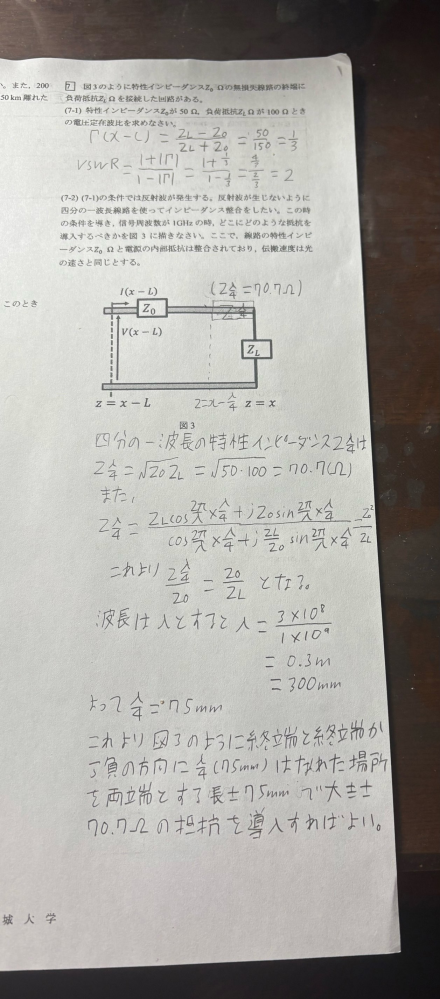 い。また、200
50 km 離れた
7 図3のように特性インピーダンスZ₀ Ωの無損失線路の終端に
負荷抵抗Z_L Ωを接続した回路がある。
(7-1) 特性インピーダンスZ₀が 50 Ω、負荷抵抗Z_L Ωが 100 Ωとき
の電圧定在波比を求めなさい。
Γ(x-L) = (Z_L - Z₀)/(Z_L + Z₀) = 50/150 = 1/3
VSWR = (1+|Γ|)/(1-|Γ|) = (1+1/3)/(1-1/3) = (4/3)/(2/3) = 2
(7-2) (7-1)の条件では反射波が発生する。反射波が生じないように
四分の一波長線路を使ってインピーダンス整合をしたい。この時
の条件を導き、信号周波数が1GHzの時、どこにどのような抵抗を
導入するべきかを図 3 に描きなさい。ここで、線路の特性インピ
ーダンスZ₀ Ωと電源の内部抵抗は整合されており、伝搬速度は光
の速さと同じとする。
このとき
I(x - L)
(Zλ/4=70.7Ω)
Z₀
Zλ/4
V(x - L)
Z_L
z = x - L
z=x-λ/4
z = x
図 3
四分の一波長の特性インピーダンスZλ/4は
Zλ/4 = √Z₀Z_L = √50·100 = 70.7(Ω)
また、
Zλ/4 = (Z_L cos 2π/λ × λ/4 + jZ₀ sin 2π/λ × λ/4)/(cos 2π/λ × λ/4 + j Z_L/Z₀ sin 2π/λ × λ/4) = Z₀²/Z_L
これより Zλ/4/Z₀ = Z₀/Z_L となる。
波長は λ とすると λ = 3×10⁸/1×10⁹
= 0.3m
= 300mm
よって λ/4 = 75mm
これより図3のように終端と終端か
ら負の方向に λ/4 (75mm) はなれた場所
を両端とする長さ75mmで大きさ
70.7Ωの抵抗を導入すればよい。
城 大 学